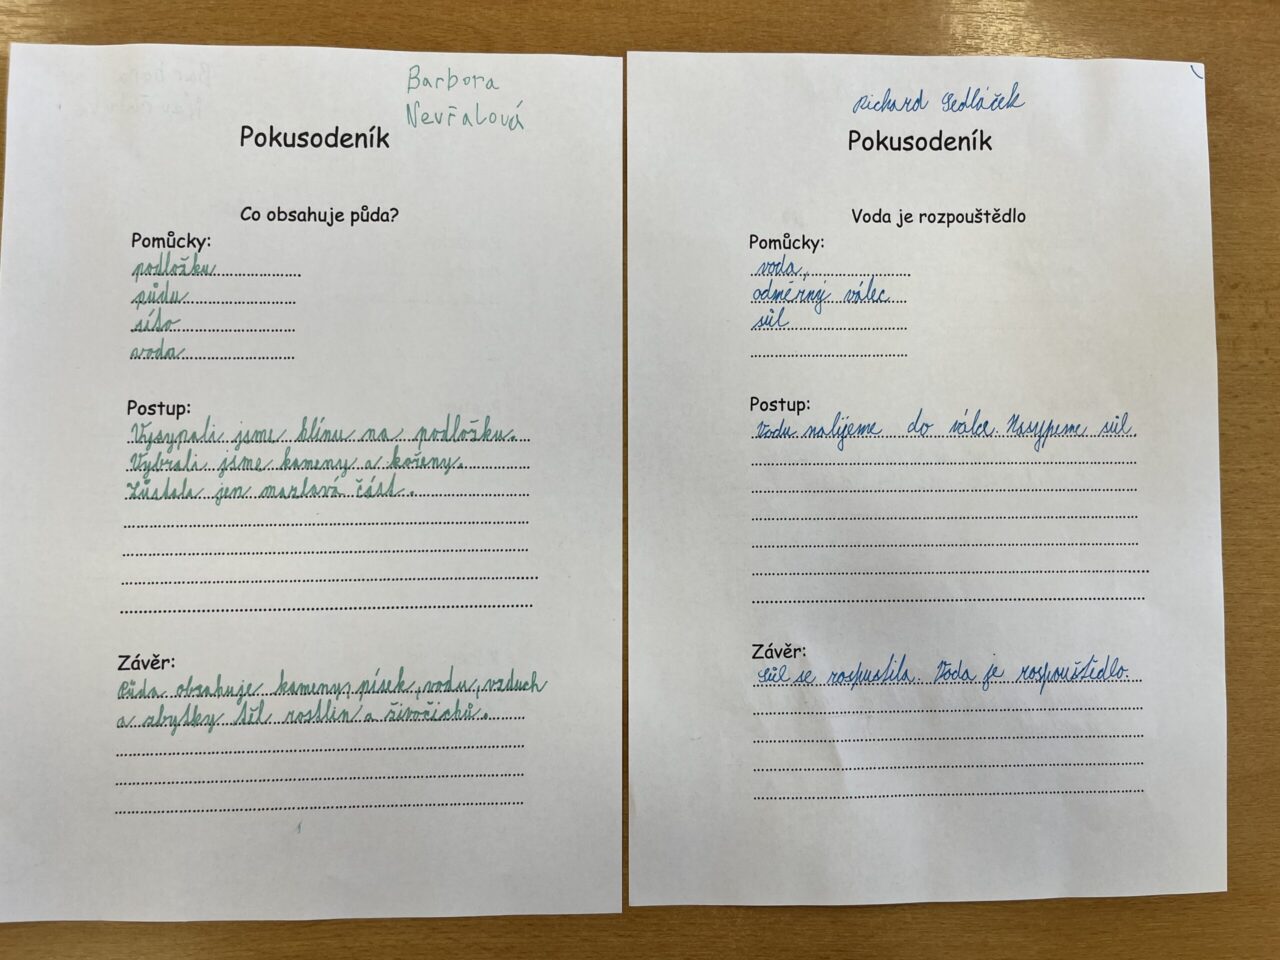 Barbora
Nevřalová
Pokusodeník
Co obsahuje půda?
Pomůcky:
podložku
půdu
síto
voda
Postup:
Vysypali jsme hlínu na podložku.
Vybrali jsme kameny a kořeny.
Zůstala jen mazlavá část.
Závěr:
Půda obsahuje kameny, písek, vodu, vzduch
a zbytky těl rostlin a živočichů.
Richard Sedláček
Pokusodeník
Voda je rozpouštědlo
Pomůcky:
voda,
odměrný válec
sůl
Postup:
Vodu nalijeme do válce. Nasypeme sůl.
Závěr:
Sůl se rospustila. Voda je rospouštědlo.